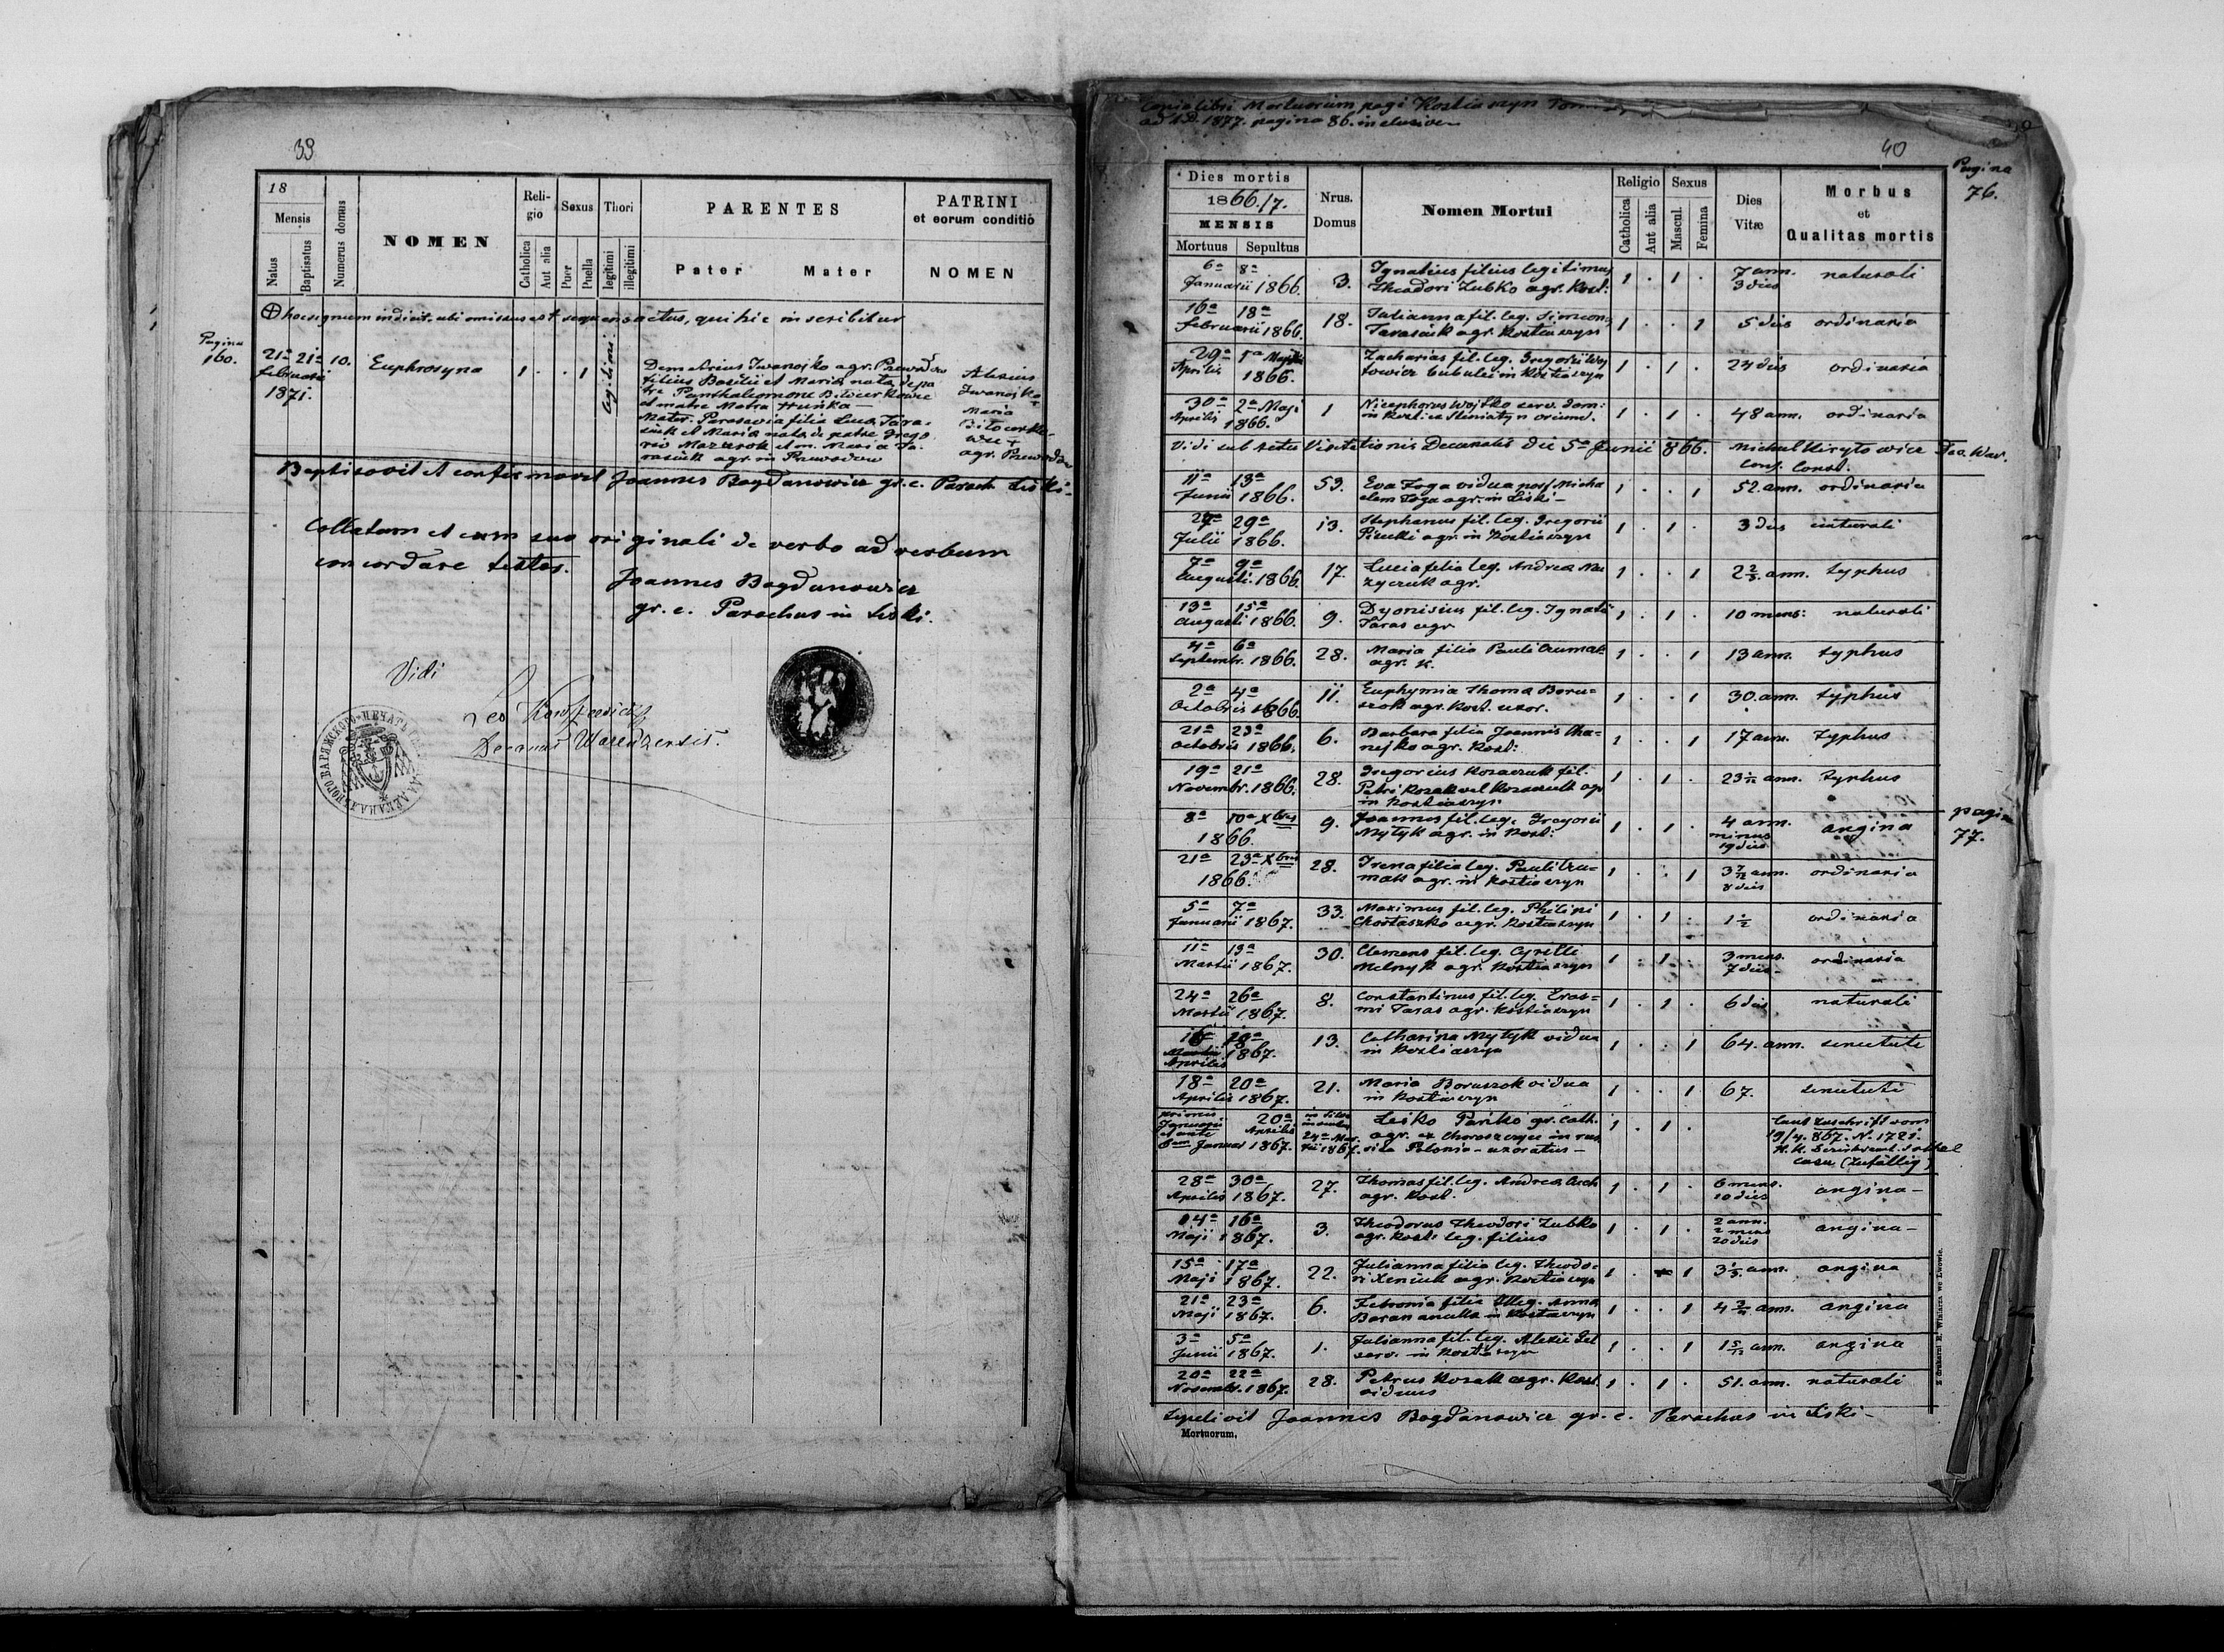 39
18
Mensis
Natus
Baptisatus
Numerus domus
NOMEN
Reli-
gio
Catholica
Aut alia
Sexus
Puer
Puella
Thori
legitimi
illegitimi
PARENTES
Pater Mater
PATRINI
et eorum conditio
NOMEN
hoc signum indicit, ubi omissus est sequens actus, qui hic inscribitur
Pagina
160.
21a 21a 10. Euphrosyna 1 . . 1 legitimi.
Februarii
1871.
Demetrius Iwanejko agr. Przewodow
filius Basilii et Maria nata de pa
tre Panthaleomone
et matre Motra Huńka
Mater: Parascevia filia Luca Tara-
siuk et Maria nata de patre Grego
rio Mazurok et m. Maria Ta-
rasiuk agr. in Przewodow
Alexius
Iwanejko
+
Maria
agr. Przewodow
Baptisavit et confirmavit Joannes Bogdanowicz gr. c. Paroch. Liski.
Collatum et cum suo originali de verbo ad verbum
concordare testor.
Joannes Bogdanowicz
gr. c. Parochus in Liski.
Vidi
Leo
Decanus Warenzensis.
Copia libri Mortuorum pagi Kostiaszyn
ad A.D. 1877. pagina 86. inclusive
40
Pagina
76.
Dies mortis
1866./7.
MENSIS
Mortuus Sepultus
Nrus.
Domus
Nomen Mortui
Religio
Catholica
Aut alia
Sexus
Mascul.
Femina
Dies
Vitæ
Morbus
et
Qualitas mortis
6a 8a
Januarii 1866. 3. Ignatius filius legitimus
Theodori Zubko agr. Kost: 1 . 1 . 7 ann.
3 dies naturali
16a 18a
Februarii 1866. 18. Julianna fil. leg. Simeonis
Tarasiuk agr. Kostiaszyn 1 . . 1 5 dies ordinaria
29a 1a Maji
Aprilis 1866. Zacharias fil. leg. Gregorii Woj
towicz bubulci in Kostiaszyn 1 . 1 . 24 dies ordinaria
30a 2a Maji
Aprilis 1866. 1 Nicephorus Wojtko serv. dom:
in Kost. ex Steniatyn oriund. 1 . 1 . 48 ann. ordinaria
Vidi sub actu Visitationis Decanalis die 5a Junii 866. Michael Kiryłowicz Dec. War.
Cons. Const.
11a 13a
Junii 1866. 53. Eva Foga vidua post Micha
elem Foga agr. in Liski 1 . . 1 52 ann. ordinaria
27a 29a
Julii 1866. 13. Stephanus fil. leg. Gregorii
agr. in Kostiaszyn 1 . 1 . 3 dies naturali
7a 9a
Augusti 1866. 17. Lucia filia leg. Andrea Ma
zyczuk agr. 1 . . 1 ann. typhus
13a 15a
Augusti 1866. 9. Dyonisius fil. leg. Ignatii
Taras agr. 1 . 1 . 10 mens: naturali
4a 6a
Septembr. 1866. 28. Maria filia Pauli Czumak
agr. K. 1 . . 1 13 ann. typhus
2a 4a
Octobris 1866. 11. Euphymia Thoma Boru=
szok agr. Kost. uxor. 1 . . 1 30. ann. typhus
21a 23a
Octobris 1866. 6. Barbara filia Joannis Cha=
nejko agr. Kost: 1 . . 1 17 ann. typhus
19a 21a
Novembr. 1866. 28. Gregorius Kozaczuk fil.
Petri Kozak vel Kozaczuk agr
in Kostiaszyn 1 . 1 . ann. typhus
8a 10a Xbris
1866. 9. Joannes fil. leg. Gregorii
Mytyk agr. in Kost: 1 . 1 . 4 ann.
minus
19 dies angina
pagina
77.
21a 23a Xbris
1866. 28. Irena filia leg. Pauli Czu=
mak agr. in Kostiaszyn 1 . . 1 3 7/12 ann.
8 dies ordinaria
5a 7a
Januarii 1867. 33. Maximus fil. leg. Philipi
Chostaszko agr. Kostiaszyn 1 . 1 . 1 1/2 ordinaria
11a 13a
Martii 1867. 30. Clemens fil. leg. Cyrilli
Melnyk agr. Kostiaszyn 1 . 1 . 3 mens.
7 dies ordinaria
24a 26a
Martii 1867. 8. Constantinus fil. leg. Eras=
mi Taras agr. Kostiaszyn 1 . 1 . 6 dies naturali
16a 18a
Martii 1867.
Aprilis 13. Catharina Mytyk vidua
in Kostiaszyn 1 . . 1 64. ann. senectute
18a 20a
Aprilis 1867. 21. Maria Boruszok vidua
in Kostiaszyn 1 . . 1 67. senectute
20a
Aprilis
Januar 1867. Leśko Pańko gr. cath.
agr. ex in rus
sica Polonia - uxoratus - 1 . 1 . Laut Zuschrift vom
19/4. 867. N. 1721.
K. K. Bezirksamt. Sokal
casu (zufällig)
28a 30a
Aprilis 1867. 27. Thomas fil. leg. Andrea
agr. Kost. 1 . 1 . 6 mens.
10 dies angina -
14a 16a
Maji 1867. 3. Theodorus Theodori Zubko
agr. Kost: leg. filius 1 . 1 . 2 ann.
2 mens
20 dies angina -
15a 17a
Maji 1867. 22. Julianna filia leg. Theodo-
ri agr. Kostiaszyn 1 . . 1 ann. angina
21a 23a
Maji 1867. 6. Febronia filia illeg. Anna
Baran ancilla in Kostiaszyn 1 . . 1 ann. angina
3a 5a
Junii 1867. 1. Julianna fil. leg. Alexii
serv. in Kostiaszyn 1 . . 1 1 5/12 ann. angina
20a 22a
Novembr. 1867. 28. Petrus Kozak agr. Kost.
viduus 1 . 1 . 51. ann. naturali
Sepelivit Joannes Bogdanowicz gr. c. Parochus in Liski -
Mortuorum.
Z drukarni E. Winiarza we Lwowie.